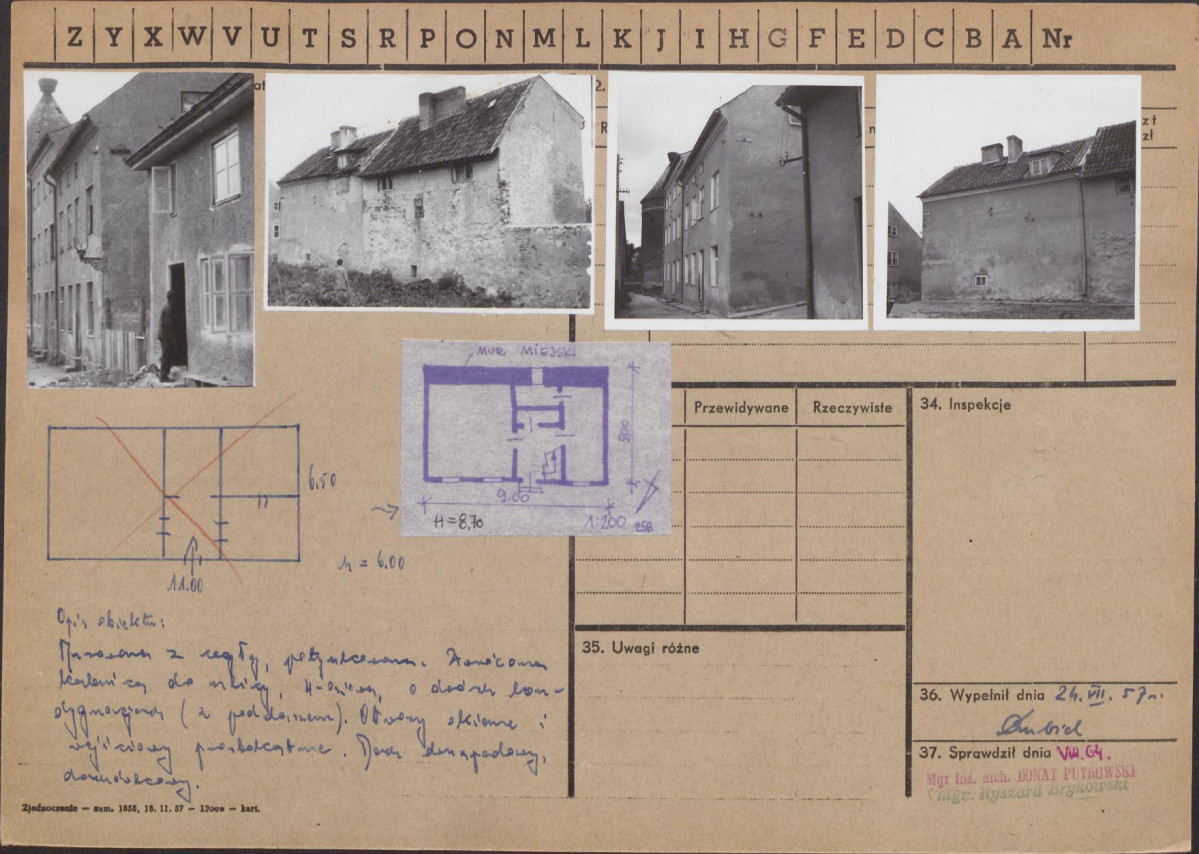 Z Y X W V U T S R P O N M L K J I H G F E D C B A Nr
2.
R
zł
MUR MIEJSKI
9.00
H=8,70
1:200
258
Przewidywane
Rzeczywiste
34. Inspekcje
6.50
11.00
h = 6.00
Opis obiektu:
Murowana z cegły, potynkowana. Zwrócona
kalenicą do ulicy, 4-osiowa, o dwóch kon-
dygnacjach (z poddaszem). Otwory okienne i
wejściowy prostokątne. Dach dwuspadowy,
dachówkowy.
35. Uwagi różne
36. Wypełnił dnia 24. VII. 57 r.
37. Sprawdził dnia VIII.64.
Mgr inż. arch. DONAT PUTKOWSKI
mgr. Ryszard Brykowski
Zjednoczenie — zam. 1858, 18. 11. 57 — 12000 — kart.